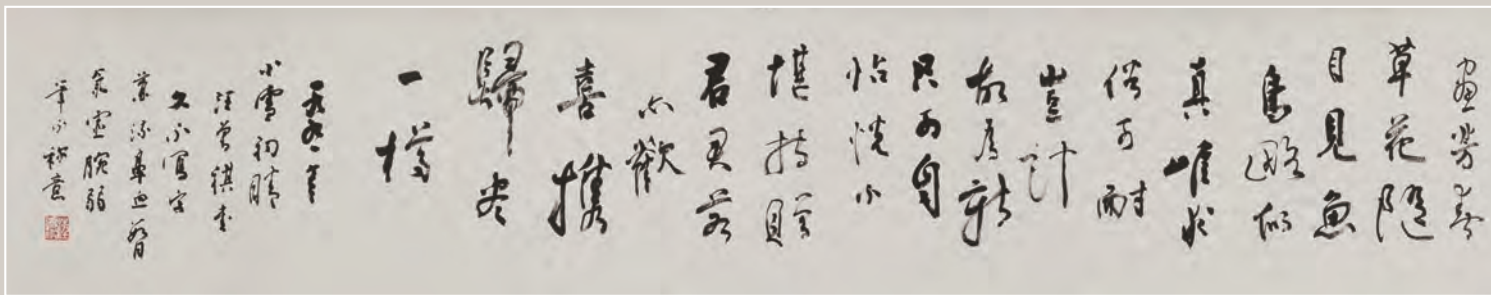 畫芳春
草花隨
目見魚
鳥略似
真唯求
俗可耐
豈計
故為新
只可自
怡悅不
堪持贈
君君若
亦歡
喜攜
歸盡
一樽
小雪初晴
汪曾祺書
久不寫字
氣虛腕弱
筆不稱意